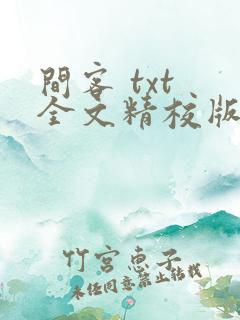 間客 txt
全文精校版
竹宮惠子
未经同意禁止转载